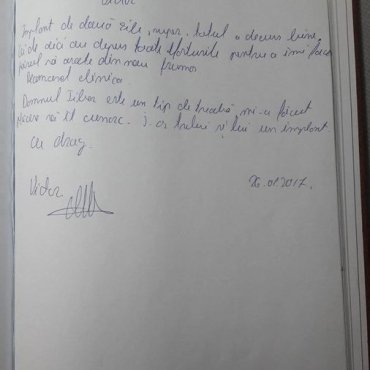 Implant de două zile, super, totul a decurs bine.
Cei de aici au depus toate eforturile pentru a îmi face
părul să arate din nou frumos
Recomand clinica.
Domnul este un tip de treabă mi-a făcut
plăcere să îl cunosc. i-aș trebui și lui un implant
cu drag.
Victor
26.01.2017.